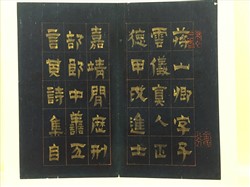 蔣山卿字子
雲儀真人正
德甲戌進士
嘉靖間歷刑
部郎中善五
言其詩集自